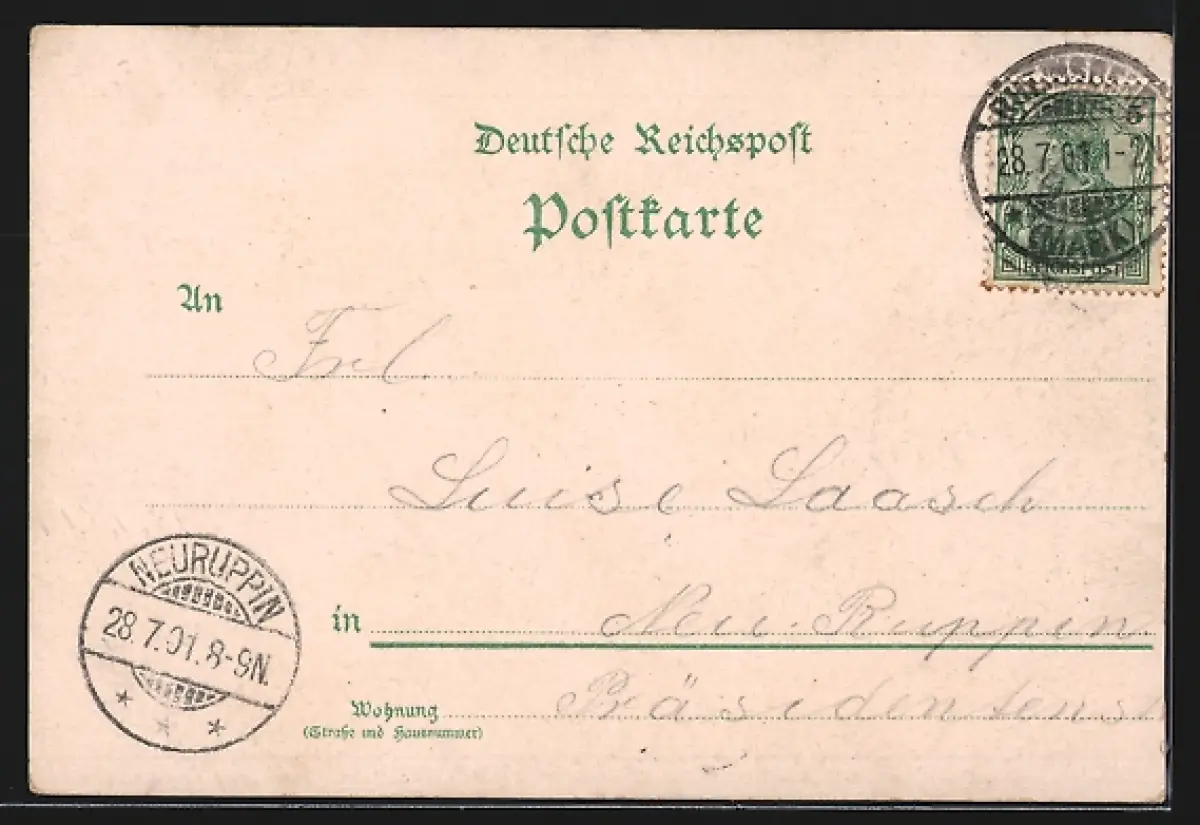 Deutsche Reichspost
Postkarte
5
28.7.01.1-2N
(MARK)
REICHSPOST
An
Frl.
Luise Laasch
NEURUPPIN
28.7.01.8-9N.
in Neu-Ruppin.
Wohnung Präsidentenst
(Straße und Hausnummer)